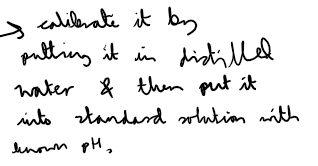 → calibrate it by
putting it in distilled
water & then put it
into standard solution with
known pH.